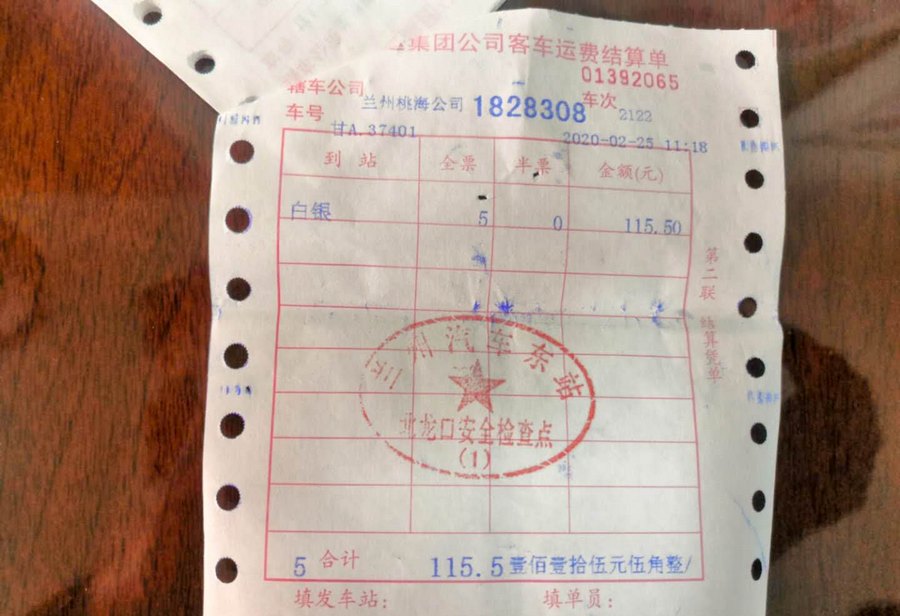 集团公司客车运费结算单
01392065
辖车公司 兰州桃海公司 1828308 车次 2122
车号 甘A.37401 2020-02-25 11:18
到站 全票 半票 金额(元)
白银 5 0 115.50
第二联 结算凭单
兰州汽车东站
北龙口安全检查点
(1)
5 合计 115.5 壹佰壹拾伍元伍角整/
填发车站: 填单员: